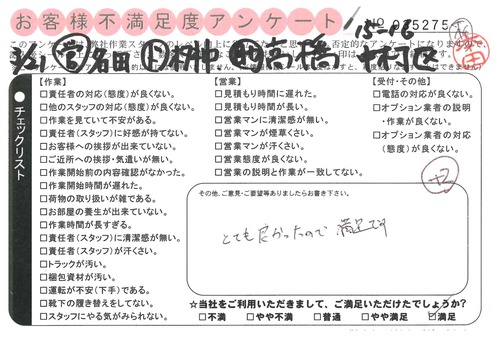 お客様不満足度アンケート
15-16
【作業】
□責任者の対応(態度)が良くない。
□他のスタッフの対応(態度)が良くない。
□作業を見ていて不安がある。
□責任者(スタッフ)に好感が持てない。
□お客様への挨拶が出来ていない。
□ご近所への挨拶・気遣いが無い。
□作業開始前の内容確認がなかった。
□作業開始時間が遅れた。
□荷物の取り扱いが雑である。
□お部屋の養生が出来ていない。
□作業時間が長すぎる。
□責任者(スタッフ)に清潔感が無い。
□責任者(スタッフ)が汗くさい。
□トラックが汚い。
□梱包資材が汚い。
□運転が不安(下手)である。
□靴下の履き替えをしてない。
□スタッフにやる気がみられない。
【営業】
□見積もり時間に遅れた。
□見積もり時間が長い。
□営業マンに清潔感が無い。
□営業マンが煙草くさい。
□営業マンが汗くさい。
□営業態度が良くない。
□営業の説明と作業が一致してない。
【受付・その他】
□電話の対応が良くない。
□オプション業者の説明
・作業が良くない。
□オプション業者の対応
(態度)が良くない。
チェックリスト
その他、ご意見・ご要望等ありましたらお書き下さい。
とても良かったので満足です
☆当社をご利用いただきまして、ご満足いただけたでしょうか?
□不満 □やや不満 □普通 □やや満足 ☑満足